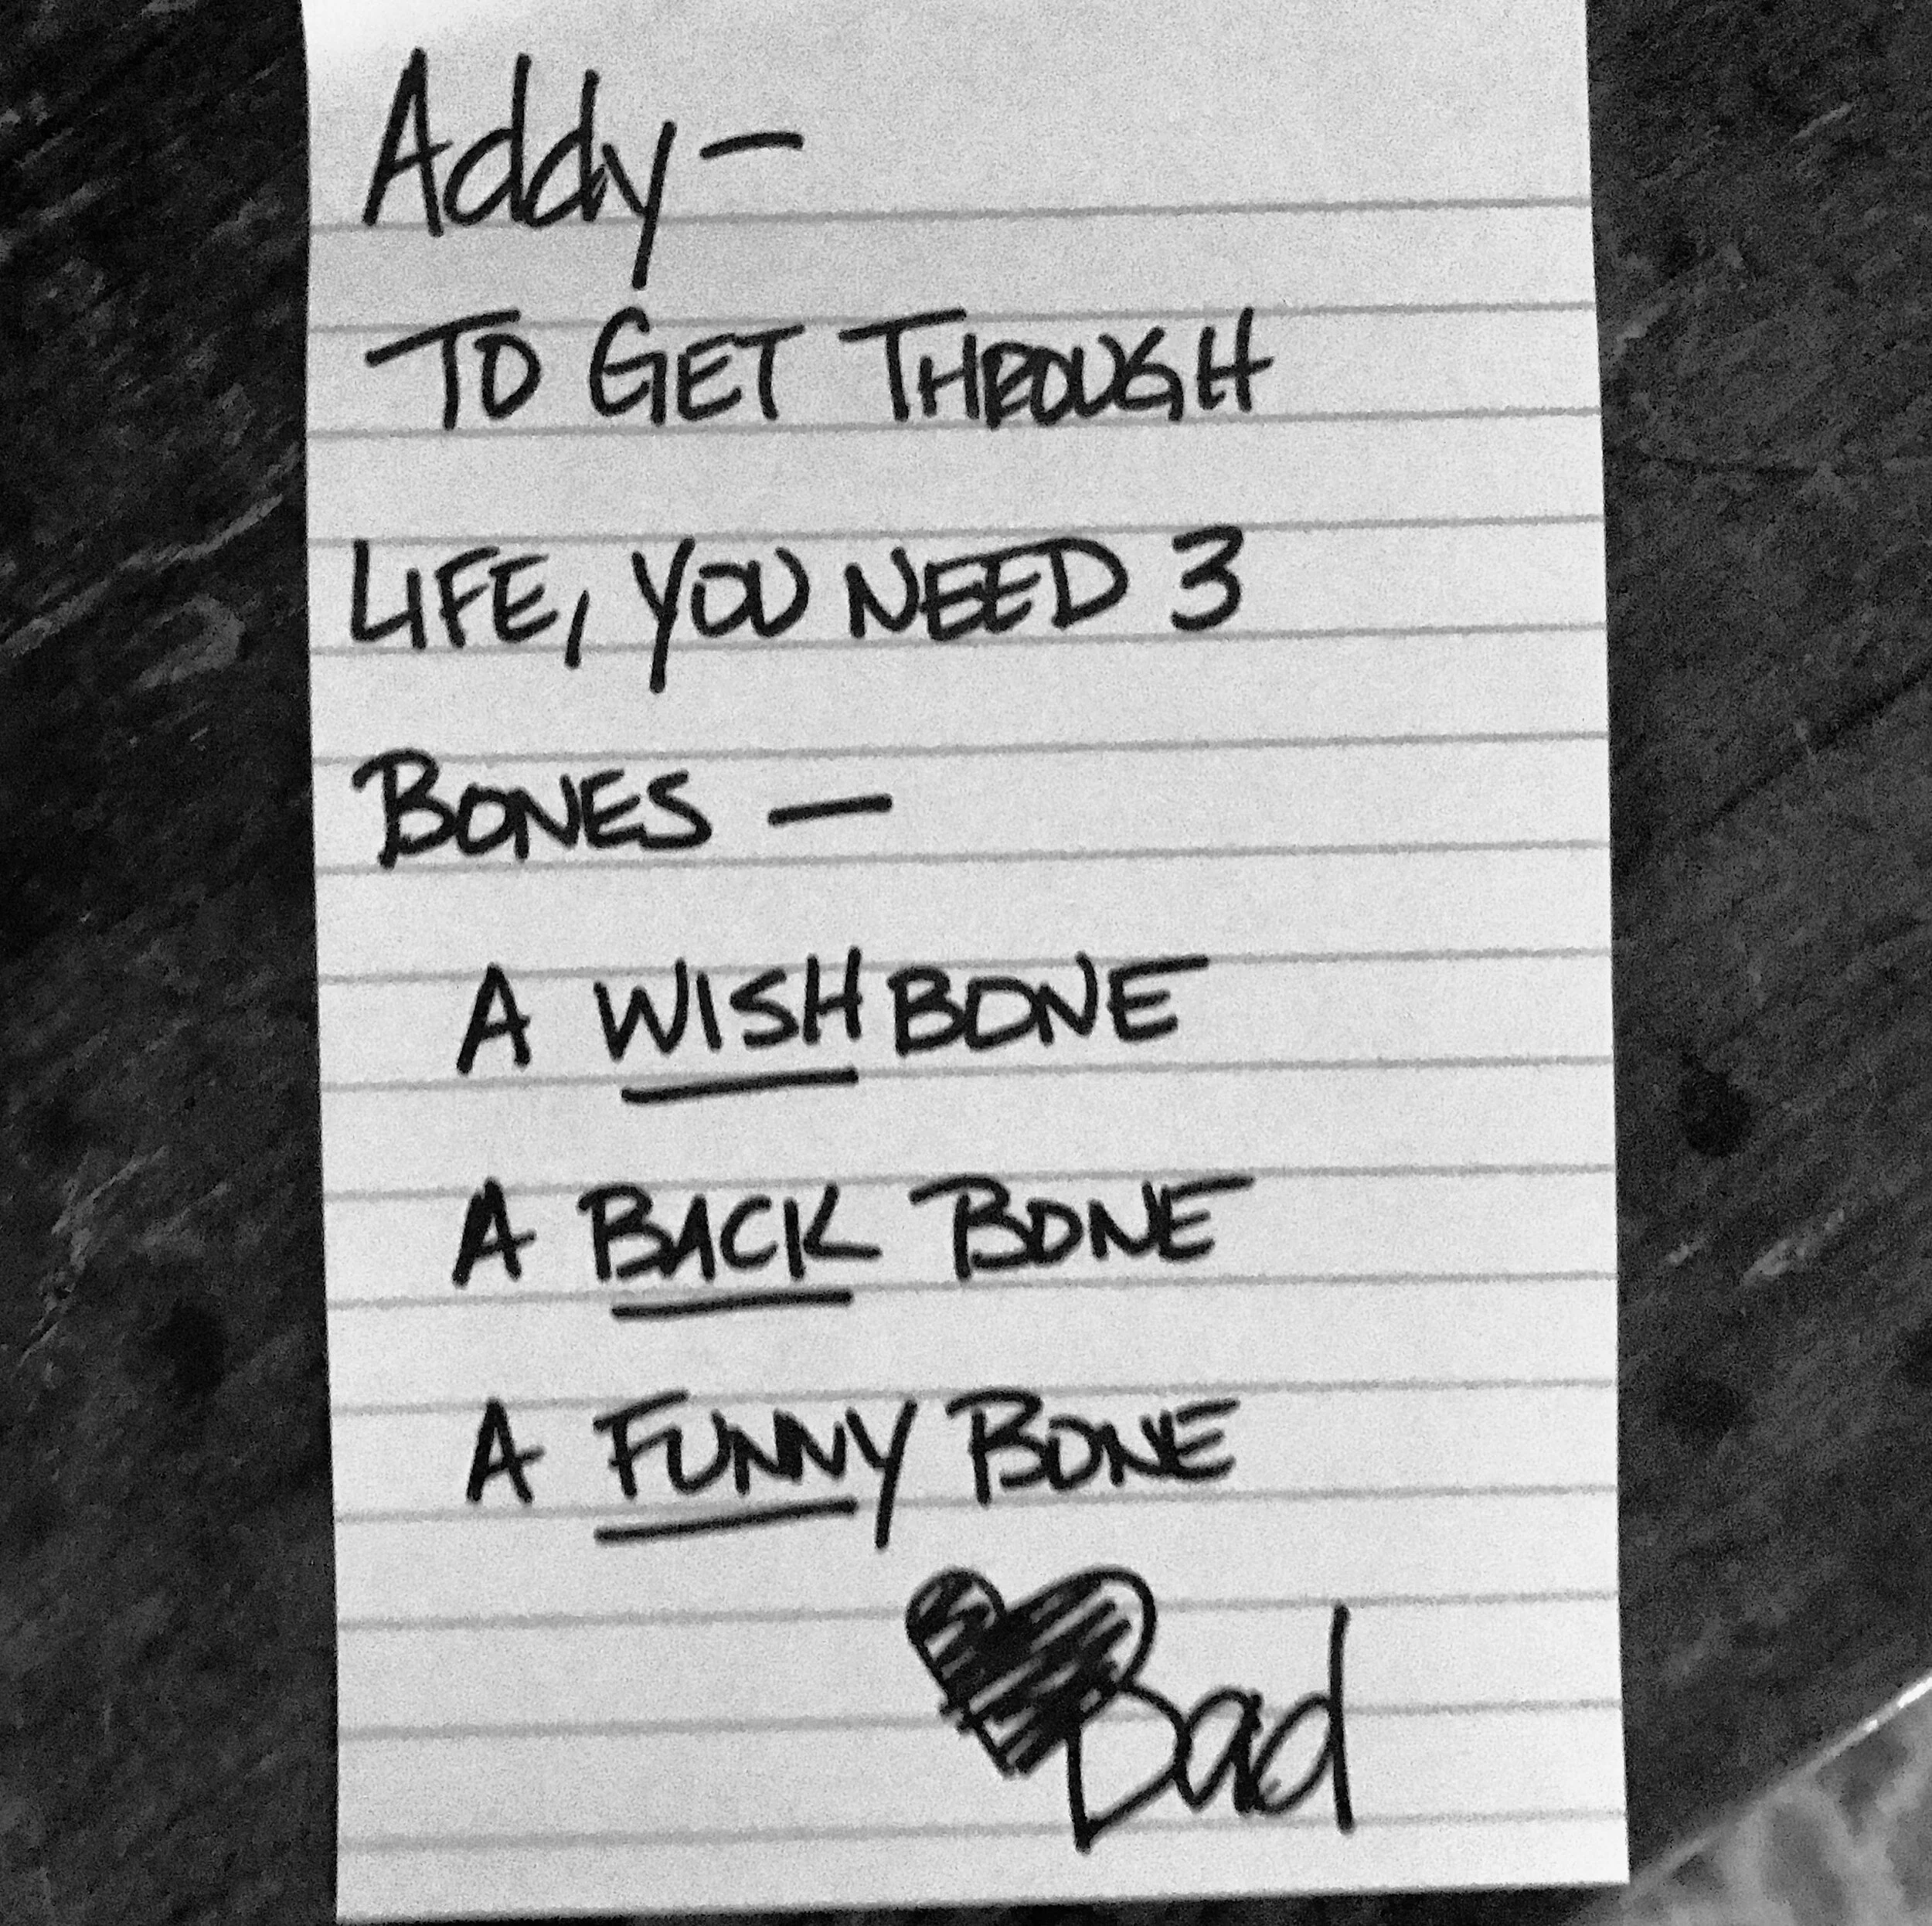 Addy-
TO GET THROUGH
LIFE, YOU NEED 3
BONES —
A WISHBONE
A BACK BONE
A FUNNY BONE
Dad